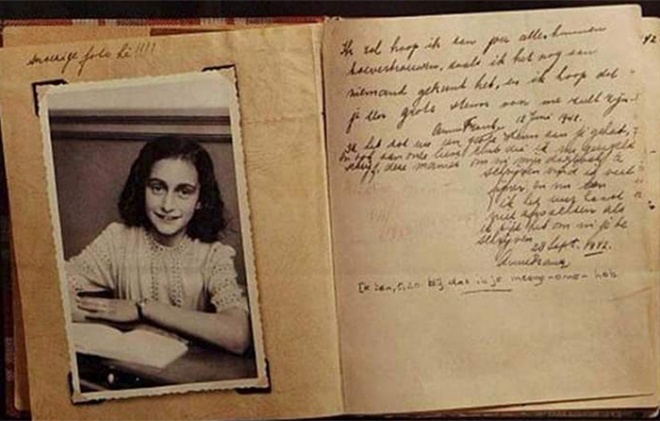 snoezige foto hè !!!!
Ik zal hoop ik aan jou alles kunnen
toevertrouwen, zoals ik het nog aan
niemand gekund heb, en ik hoop dat
je een grote steun voor me zult zijn.
Anne Frank. 12 Juni 1942.
Ik heb tot nu een grote steun aan je gehad,
en ook aan onze lieve club die ik nu geregeld
schrijf, deze manier om in mijn dagboek te
schrijven vind ik veel
fijner en nu kan
ik het uurtje haast
niet afwachten als
ik tijd heb om in je te
schrijven.
28 Sept. 1942.
Anne Frank
Ik ben, o, zo blij dat ik je meegenomen heb
42